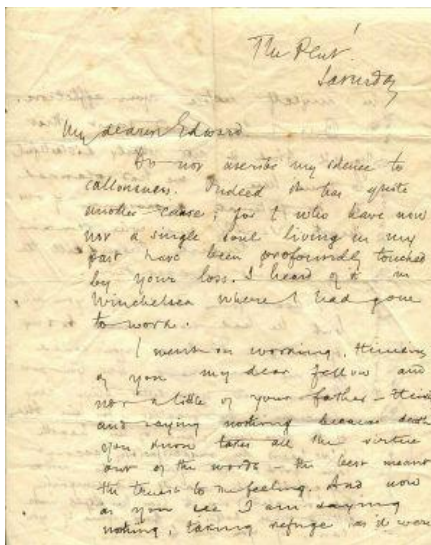 The Pent
Saturday
My dearest Edward
Do not ascribe my silence to
callousness. Indeed it has quite
another cause; for I who have now
not a single soul living in my
past have been profoundly touched
by your loss. I heard of it in
Winchelsea where I had gone
to work.
I went on working, thinking
of you my dear fellow and
not a little of your father
and saying nothing because death
you know takes all the virtue
out of the words - the best meant
the truest to feeling. And now
as you see I am saying
nothing, taking refuge as it were